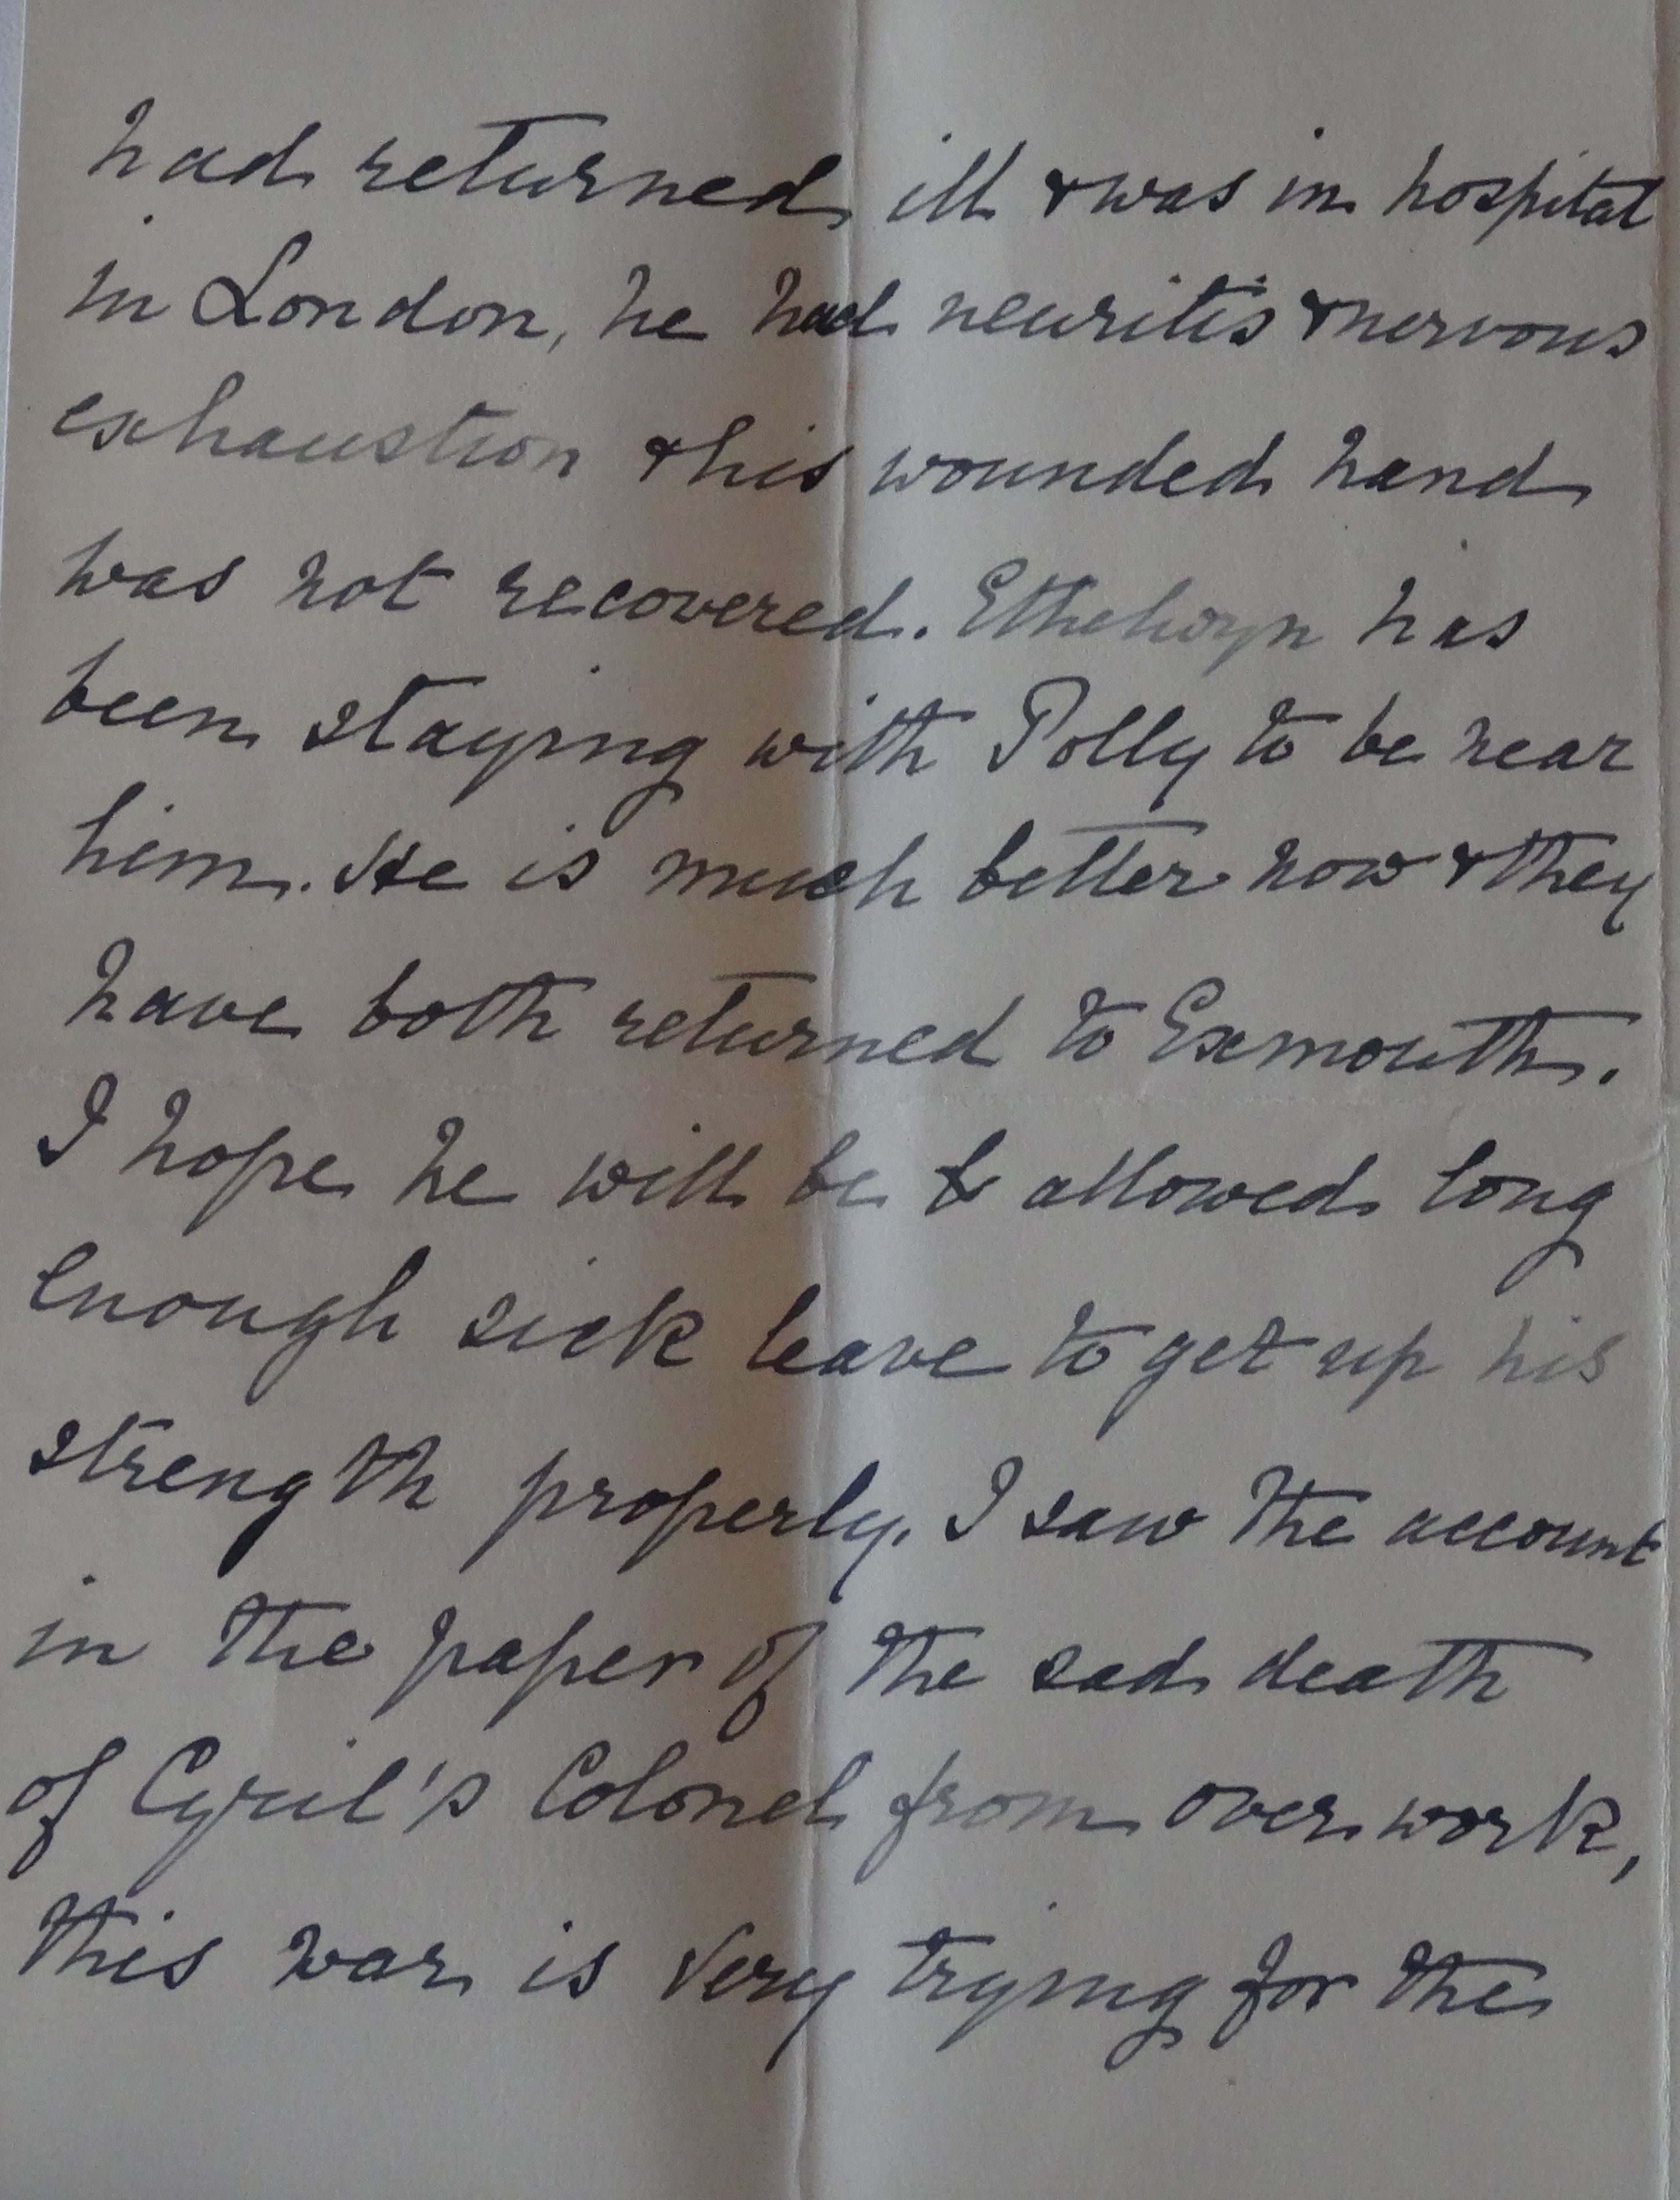 had returned ill & was in hospital
in London, he had neuritis & nervous
exhaustion & his wounded hand
was not recovered. Ethelwyn has
been staying with Polly to be near
him. He is much better now & they
have both returned to Exmouth.
I hope he will be allowed long
enough sick leave to get up his
strength properly. I saw the account
in the paper of the sad death
of Cyril's Colonel from over work,
this war is very trying for the